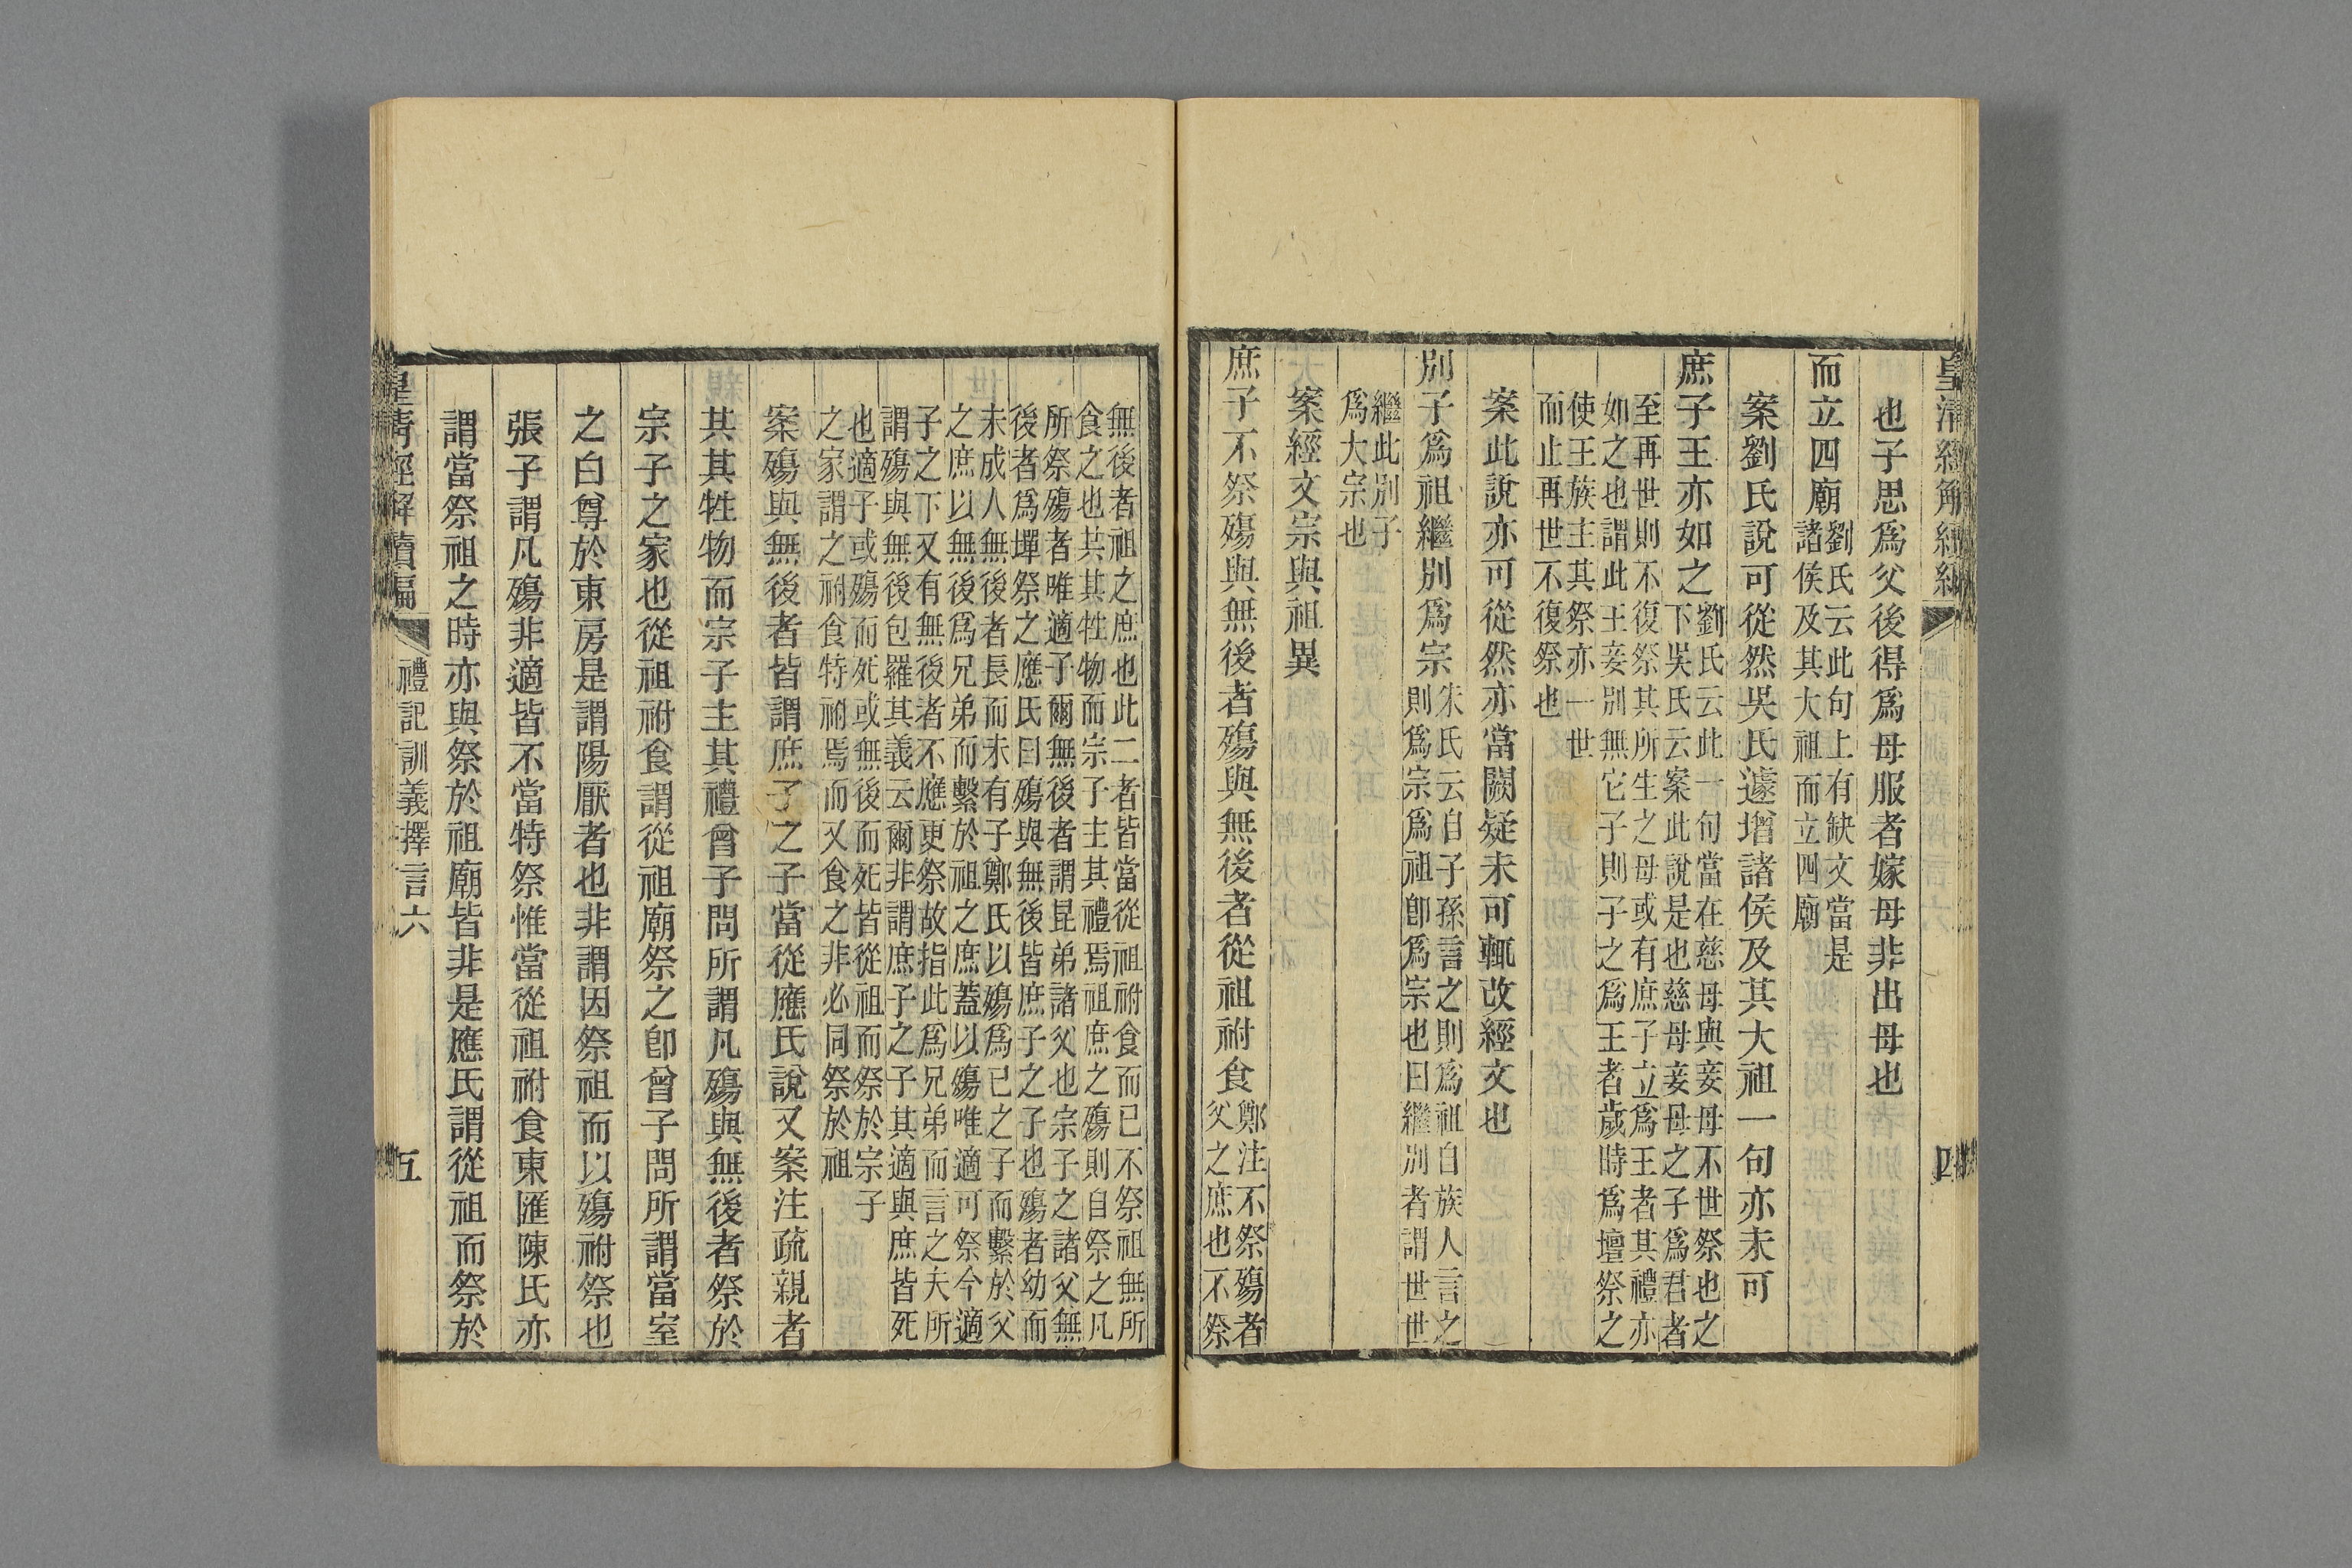 也子思爲父後得爲母服者嫁母非出母也
而立四廟劉氏云此句上有缺文當是
諸侯及其大祖而立四廟
案劉氏說可從然吳氏遽增諸侯及其大祖一句亦未可
庶子王亦如之劉氏云此一句當在慈母與妾母不世祭也之
下吳氏云案此說是也慈母妾母之子爲君者
至再世則不復祭其所生之母或有庶子立爲王者其禮亦
如之也謂此王妾別無它子則子之爲王者歲時爲壇祭之
使王族主其祭亦一世
而止再世不復祭也
案此說亦可從然亦當闕疑未可輒改經文也
別子爲祖繼別爲宗朱氏云自子孫言之則爲祖自族人言之
則爲宗爲祖卽爲宗也曰繼別者謂世世
繼此別子
爲大宗也
案經文宗與祖異
庶子不祭殤與無後者殤與無後者從祖祔食鄭注不祭殤者
父之庶也不祭
無後者祖之庶也此二者皆當從祖祔食而已不祭祖無所
食之也共其牲物而宗子主其禮焉祖庶之殤則自祭之凡
所祭殤者唯適子爾無後者謂昆弟諸父也宗子之諸父無
後者爲墠祭之應氏曰殤與無後皆庶子之子也殤者幼而
未成人無後者長而未有子鄭氏以殤爲已之子而繫於父
之庶以無後爲兄弟而繫於祖之庶蓋以殤唯適可祭今適
子之下又有無後者不應更祭故指此爲兄弟而言之夫所
謂殤與無後包羅其義云爾非謂庶子之子其適與庶皆死
也適子或殤而死或無後而死皆從祖而祭於宗子
之家謂之祔食特祔焉而又食之非必同祭於祖
案殤與無後者皆謂庶子之子當從應氏說又案注疏親者
共其牲物而宗子主其禮曾子問所謂凡殤與無後者祭於
宗子之家也從祖祔食謂從祖廟祭之卽曾子問所謂當室
之白尊於東房是謂陽厭者也非謂因祭祖而以殤祔祭也
張子謂凡殤非適皆不當特祭惟當從祖祔食東匯陳氏亦
謂當祭祖之時亦與祭於祖廟皆非是應氏謂從祖而祭於
皇清經解續編
禮記訓義擇言六
五